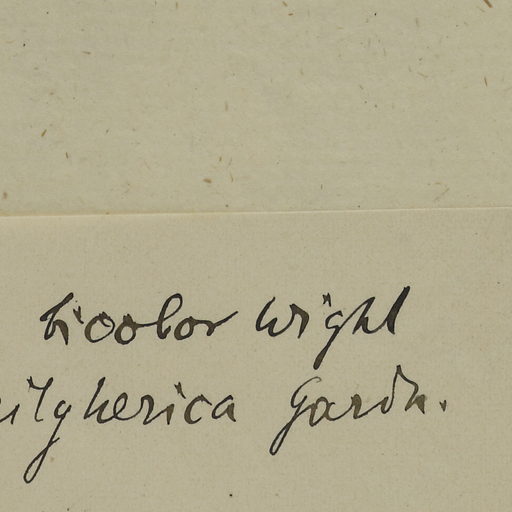 bicolor Wight
eilgherica Gardn.